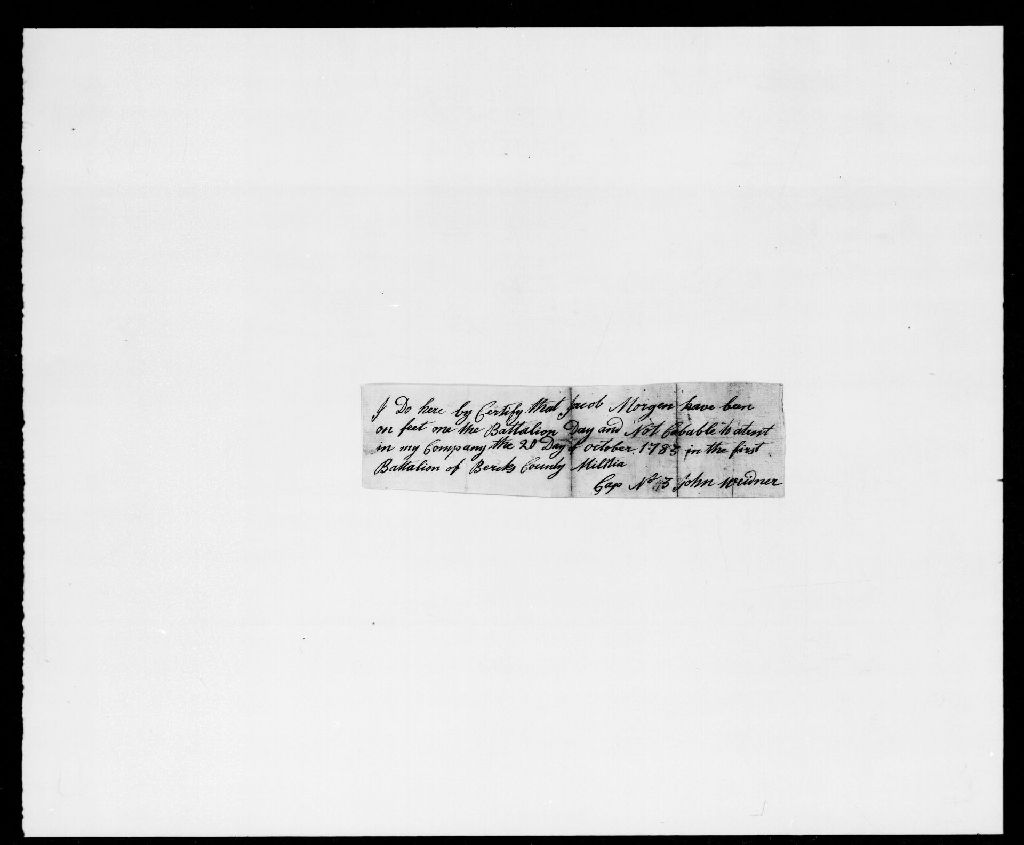 I Do here by Certify that Jacob Morgen have been
on feet one the Battalion Day and Not Cabable to atent
in my Company the 28 Day of october 1783 in the first
Battalion of Bercks County Militia
Cap No 3 John Weidner